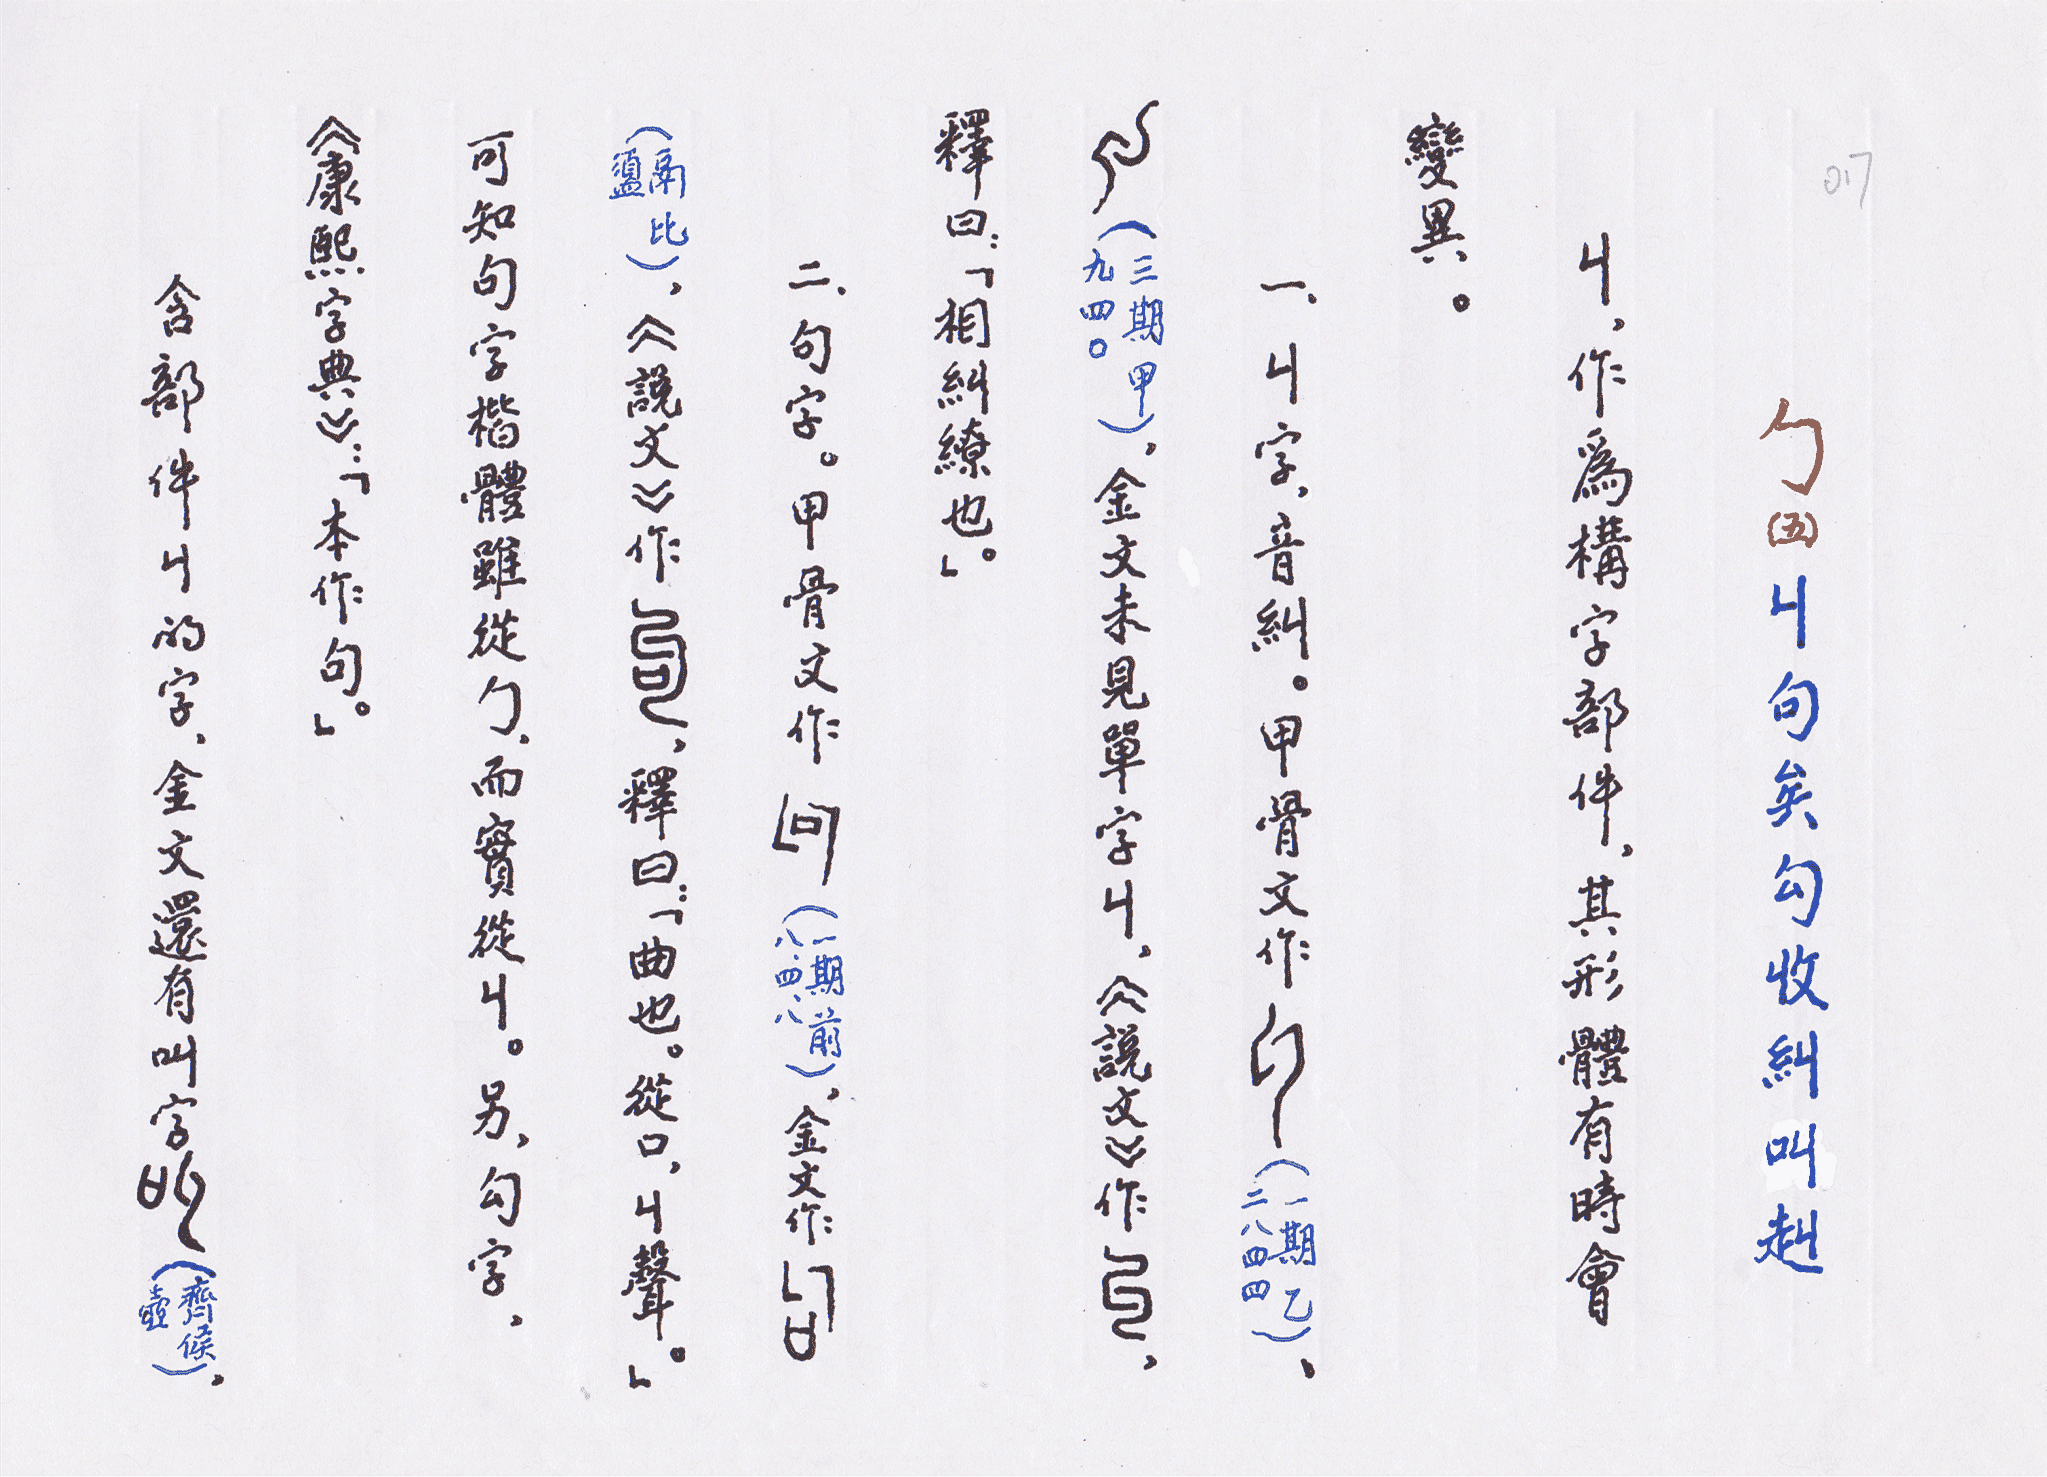 017
勹㈤丩句矣勾收糾叫赳
丩，作爲構字部件，其形體有時會
變異。
一、丩字，音糾。甲骨文作（一期乙二八四四）、
（三期甲九四〇），金文未見單字丩，《說文》作，
釋曰：「相糾繚也。」
二、句字。甲骨文作（一期前八、四、八），金文作
（鬲比盨），《說文》作，釋曰：「曲也。從口，丩聲。」
可知句字楷體雖從勹，而實從丩。另，勾字，
《康熙字典》：「本作句。」
含部件丩的字，金文還有叫字（齊侯壺），